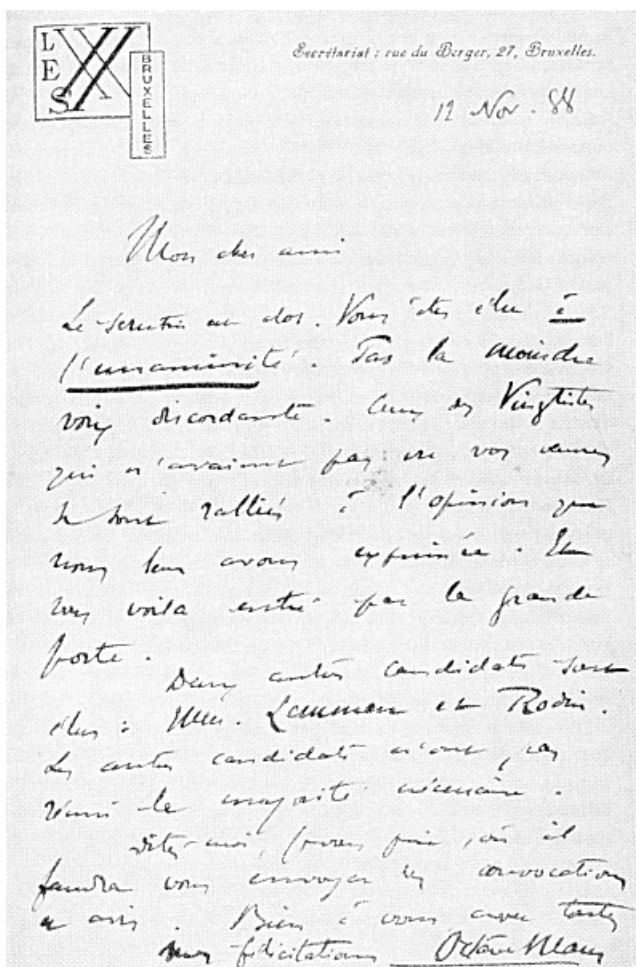 LES XX
BRUXELLES
Secrétariat : rue du Berger, 27, Bruxelles.
12 Nov. 88
Mon cher ami
Le scrutin est clos. Vous êtes élu à
l'unanimité. Pas la moindre
voix discordante. Ceux des Vingtistes
qui n'avaient pas vu vos œuvres
se sont ralliés à l'opinion que
nous leur avons exprimée. Et
vous voilà entré par la grande
porte.
Deux autres candidats sont
élus : MM. Lemmen et Rodin.
Les autres candidats n'ont pas
réuni la majorité nécessaire.
Dites-moi, je vous prie, où il
faudra vous envoyer les convocations
et avis. Bien à vous avec toutes
mes félicitations Octave Maus